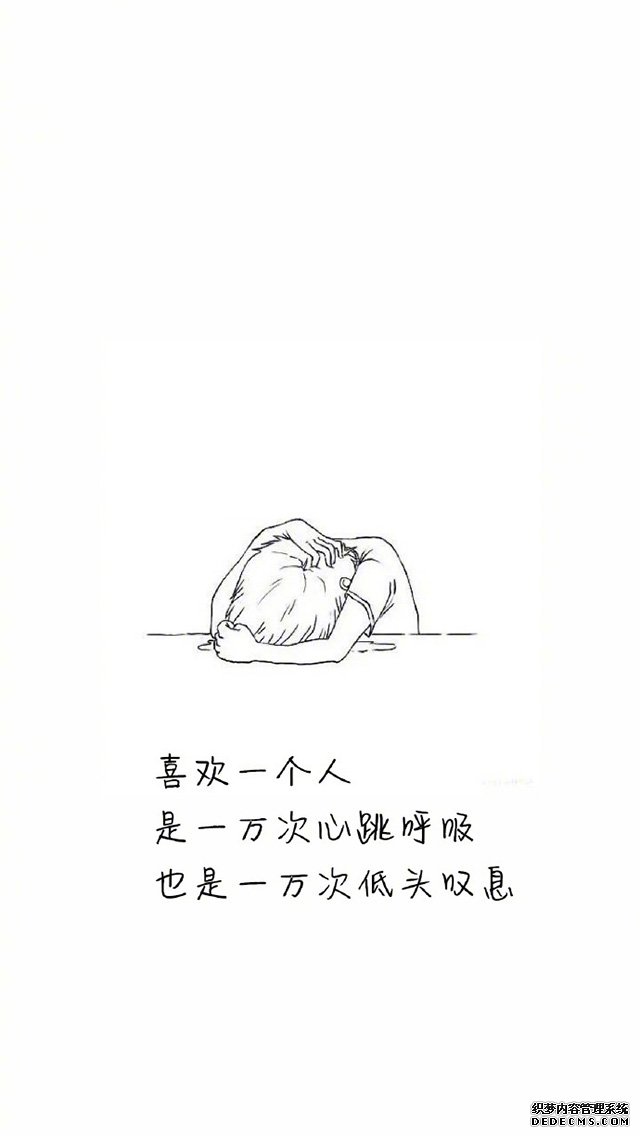 喜欢一个人
是一万次心跳呼吸
也是一万次低头叹息
织梦内容管理系统
DEDECMS.COM